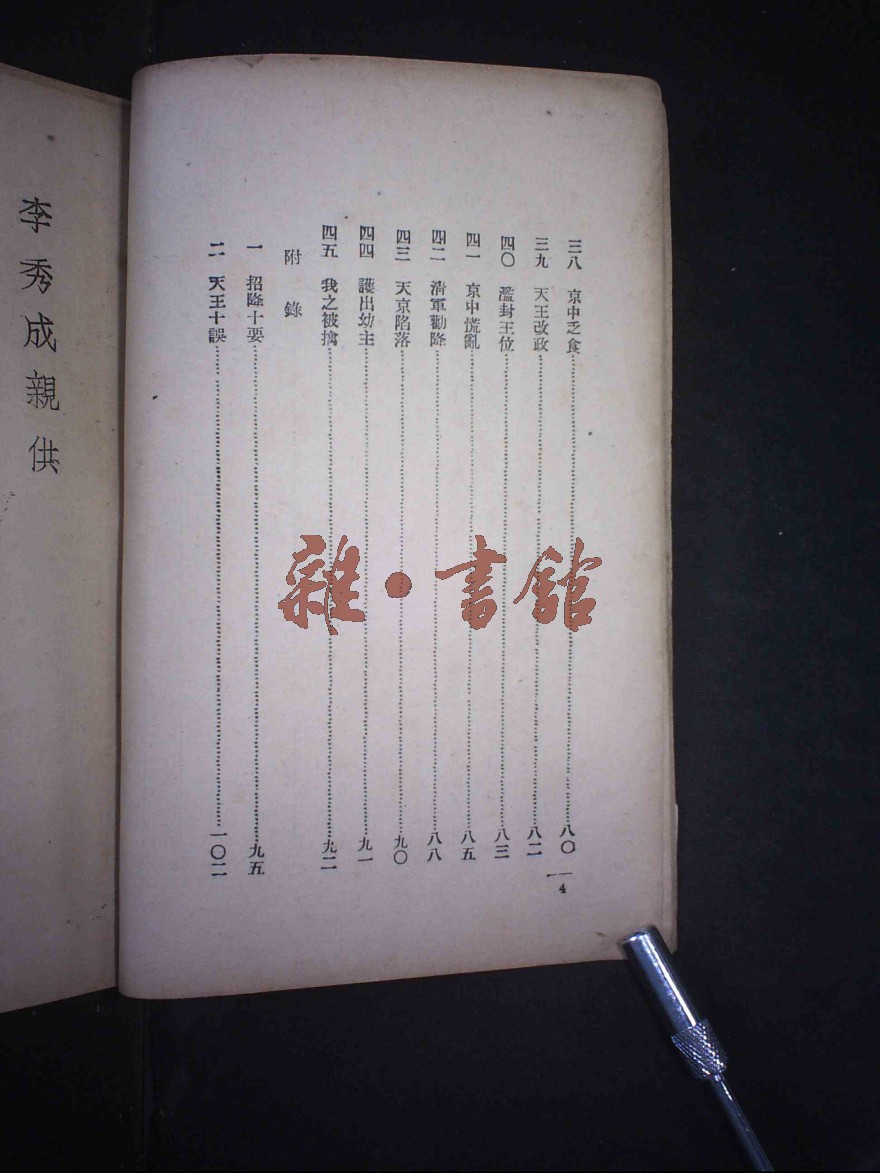 三八　京中乏食……八〇
三九　天王改政……八二
四〇　濫封王位……八三
四一　京中慌亂……八五
四二　清軍勸降……八八
四三　天京陷落……九〇
四四　護出幼主……九一
四五　我之被擒……九二
附錄
一　招降十要……九五
二　天王十誤……一〇二
4
李秀成親供
雜·書館